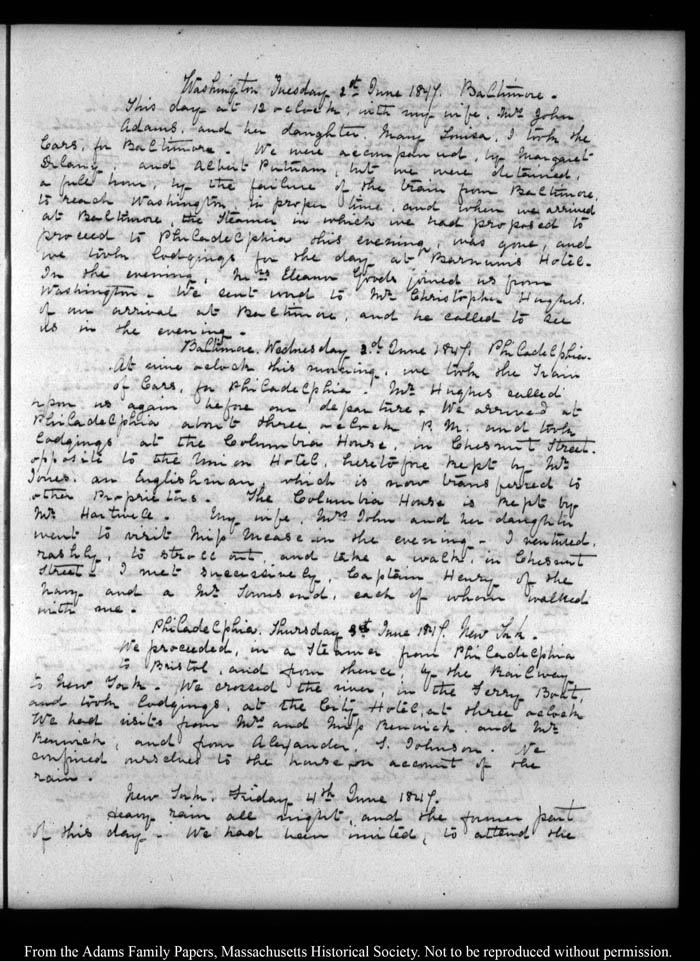 Washington Tuesday 1st June 1847. Baltimore.
This day at 12 o clock, with my wife, Mrs John
Adams, and her daughter, Mary Louisa, I took the
Cars, for Baltimore. We were accompanied, by Margaret
and Albert Putnam, but we were detained,
a full hour, by the failure of the train from Baltimore,
to reach Washington, in proper time, and when we arrived
at Baltimore, the Steamer in which we had proposed to
proceed to Philadelphia this evening, was gone, and
we took lodgings for the day at Barnums Hotel.
In the evening, Mrs Eleanor Goods joined us from
Washington. We sent word to Mr Christopher Hughes,
of our arrival at Baltimore, and he called to see
us in the evening.
Baltimore. Wednesday 2d June 1847. Philadelphia.
At nine o clock this morning, we took the Train
of Cars, for Philadelphia. Mr Hughes called
upon us again before our departure. We arrived at
Philadelphia about three, o clock P.M. and took
lodgings at the Columbia House, in Chesnut Street.
opposite to the Union Hotel, heretofore kept by Mr
Jones, an Englishman, which is now transferred to
other Proprietors. The Columbia House is kept by
Mr Hartwell. My wife, Mrs John and her daughter
went to visit Miss Mease in the evening. I ventured,
rashly, to stroll out, and take a walk, in Chesnut
Street. I met successively, Captain Henry of the
Navy and a Mr Townsend, each of whom walked
with me.
Philadelphia. Thursday 3d June 1847. New York.
We proceeded, in a Steamer from Philadelphia
to Bristol, and from thence, by the Railway
to New York. We crossed the river, in the Ferry Boat,
and took lodgings, at the City Hotel, at three o clock
We had visits from Mrs and Miss Renwick and Mr
Renwick, and from Alexander, S. Johnson. We
confined ourselves to the house on account of the
rain.
New York. Friday 4th June 1847.
Heavy rain all night, and the former part
of this day. We had been invited, to attend the
From the Adams Family Papers, Massachusetts Historical Society. Not to be reproduced without permission.